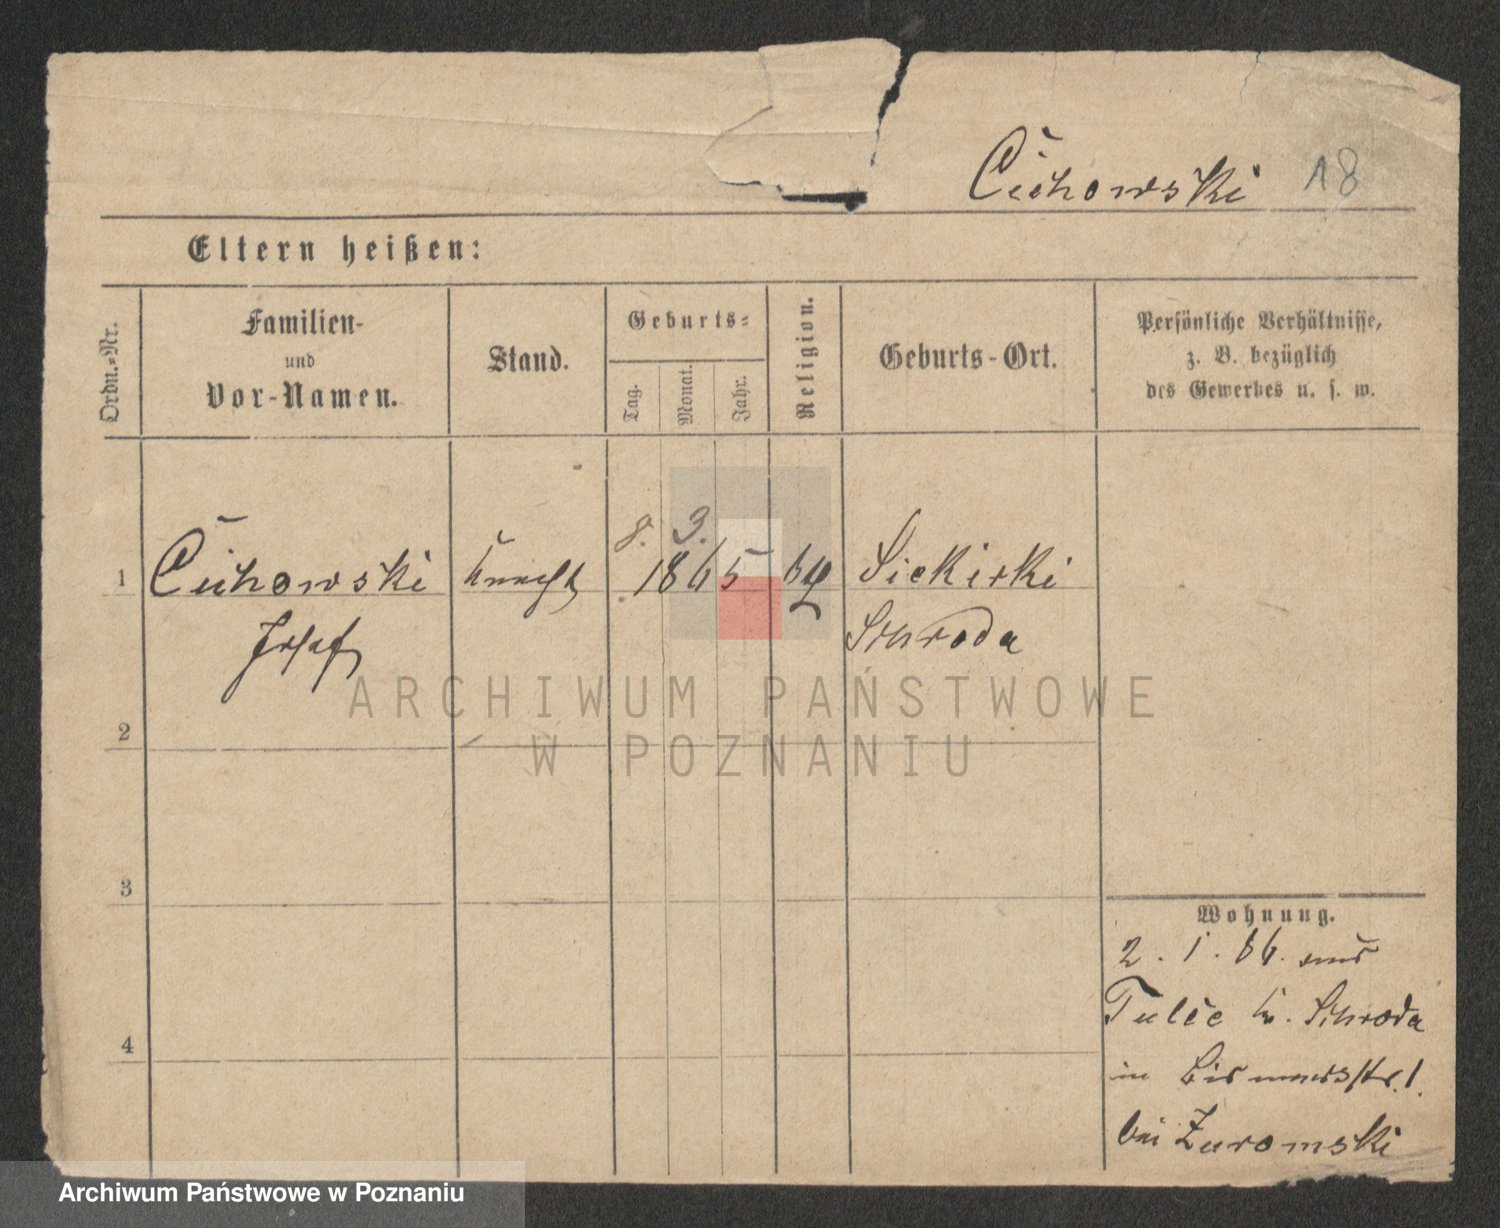 Cichowski 18
Eltern heißen:
Ordn.-Nr.
Familien-
und
Vor-Namen.
Stand.
Geburts-
Tag.
Monat.
Jahr.
Religion.
Geburts-Ort.
Persönliche Verhältnisse,
z. B. bezüglich
des Gewerbes u. s. w.
8. 3.
1 Cichowski Knecht 1865 Siekirki
Josef Schroda
ARCHIWUM PAŃSTWOWE
W POZNANIU
2
3
Wohnung.
2. 1. 86. aus
Tulce Kr. Schroda
4
in Bismarkstr. 1.
bei Zuromski
Archiwum Państwowe w Poznaniu